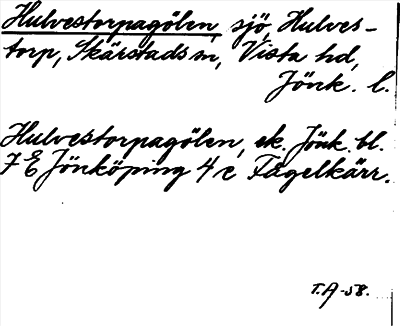 Hulvestorpagölen, sjö, Hulves-
torp, Skärstads sn, Vista hd,
Jönk. l.
Hulvestorpagölen, ek. Jönk. bl.
7 E Jönköping 4 e Fågelkärr.
T.A -58.